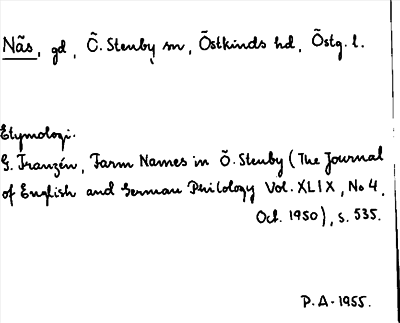 Näs, gd, Ö. Stenby sn, Östkinds hd, Östg. l.
Etymologi.
G. Franzén, Farm Names in Ö. Stenby (The Journal
of English and German Philology Vol. XLIX, No 4,
Oct. 1950), s. 535.
P.A. 1955.